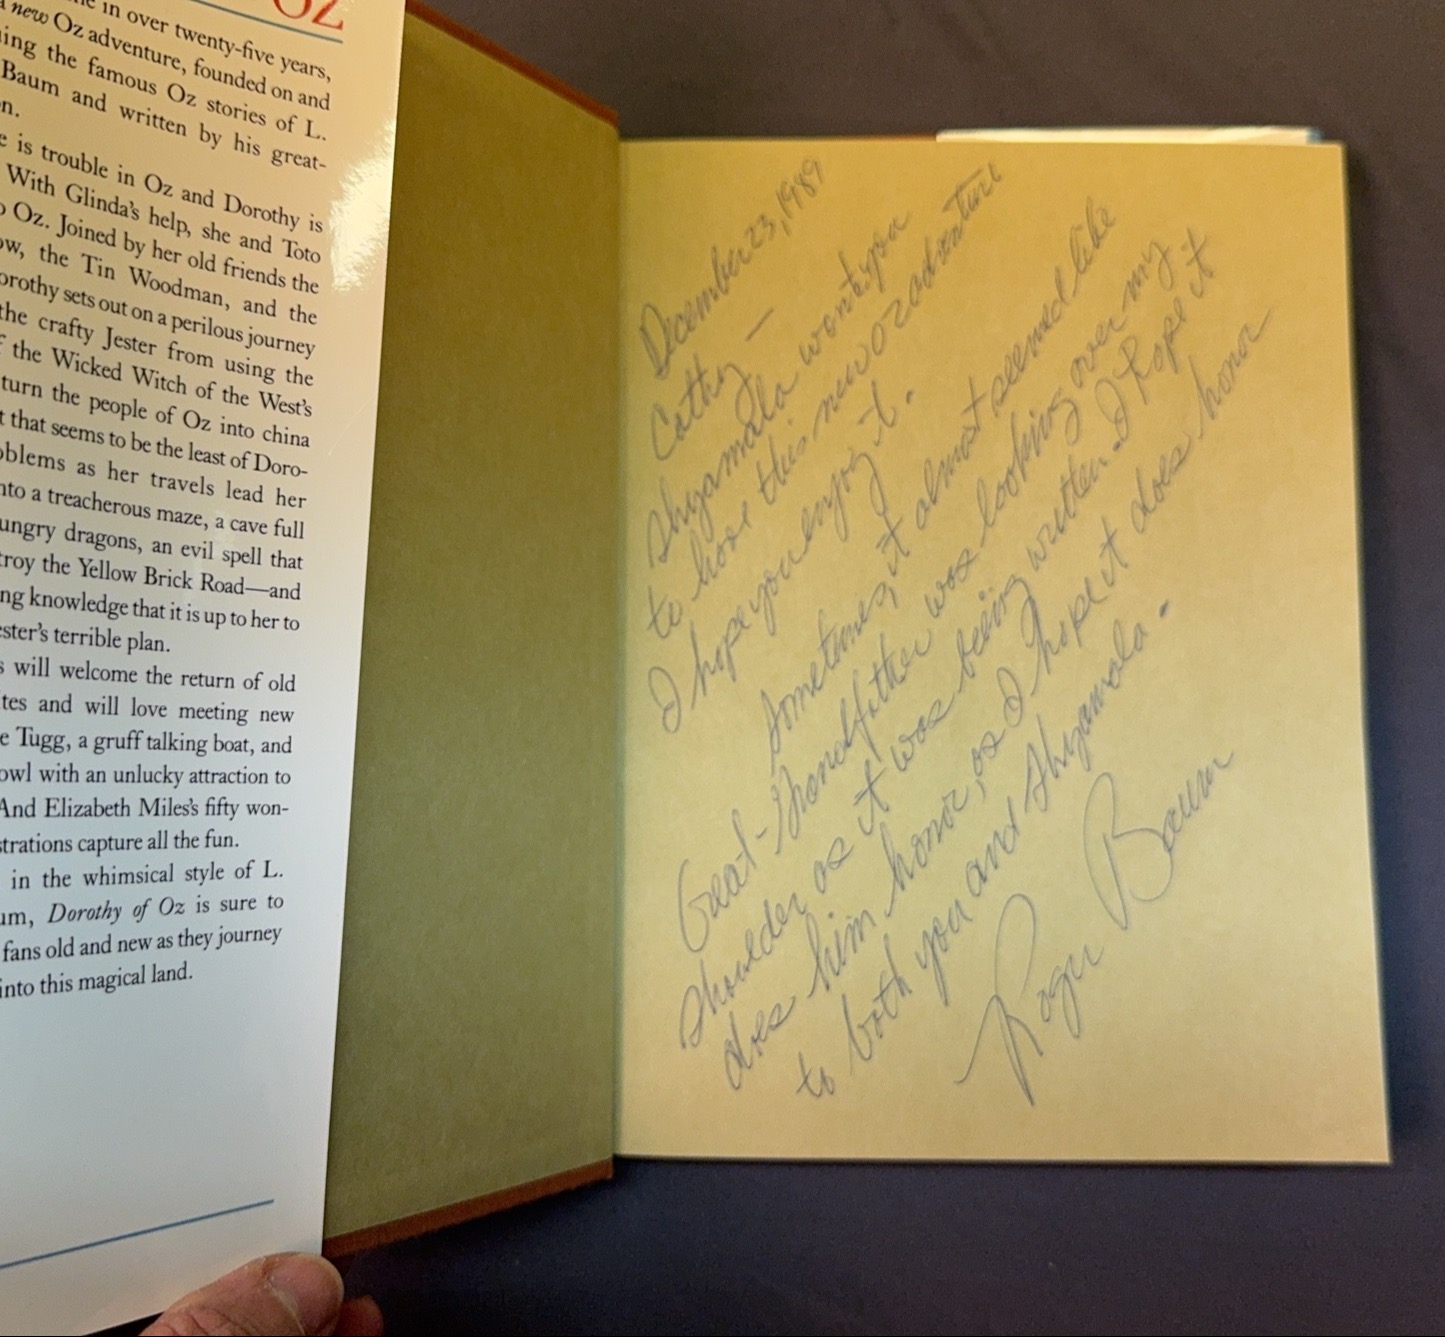 OZ
in over twenty-five years,
new Oz adventure, founded on and
the famous Oz stories of L.
Baum and written by his great-
is trouble in Oz and Dorothy is
With Glinda's help, she and Toto
Oz. Joined by her old friends the
the Tin Woodman, and the
sets out on a perilous journey
the crafty Jester from using the
the Wicked Witch of the West's
turn the people of Oz into china
that seems to be the least of Doro-
as her travels lead her
a treacherous maze, a cave full
dragons, an evil spell that
the Yellow Brick Road—and
knowledge that it is up to her to
terrible plan.
will welcome the return of old
and will love meeting new
Tugg, a gruff talking boat, and
owl with an unlucky attraction to
And Elizabeth Miles's fifty won-
capture all the fun.
in the whimsical style of L.
Dorothy of Oz is sure to
fans old and new as they journey
into this magical land.
December 23, 1989
Cathy —
Shyamala wants you
to have this new Oz adventure
I hope you enjoy it.
Sometimes it almost seemed like
Great-Grandfather was looking over my
shoulder as it was being written. I hope it
does him honor, as I hope it does honor
to both you and Shyamala.
Roger Baum